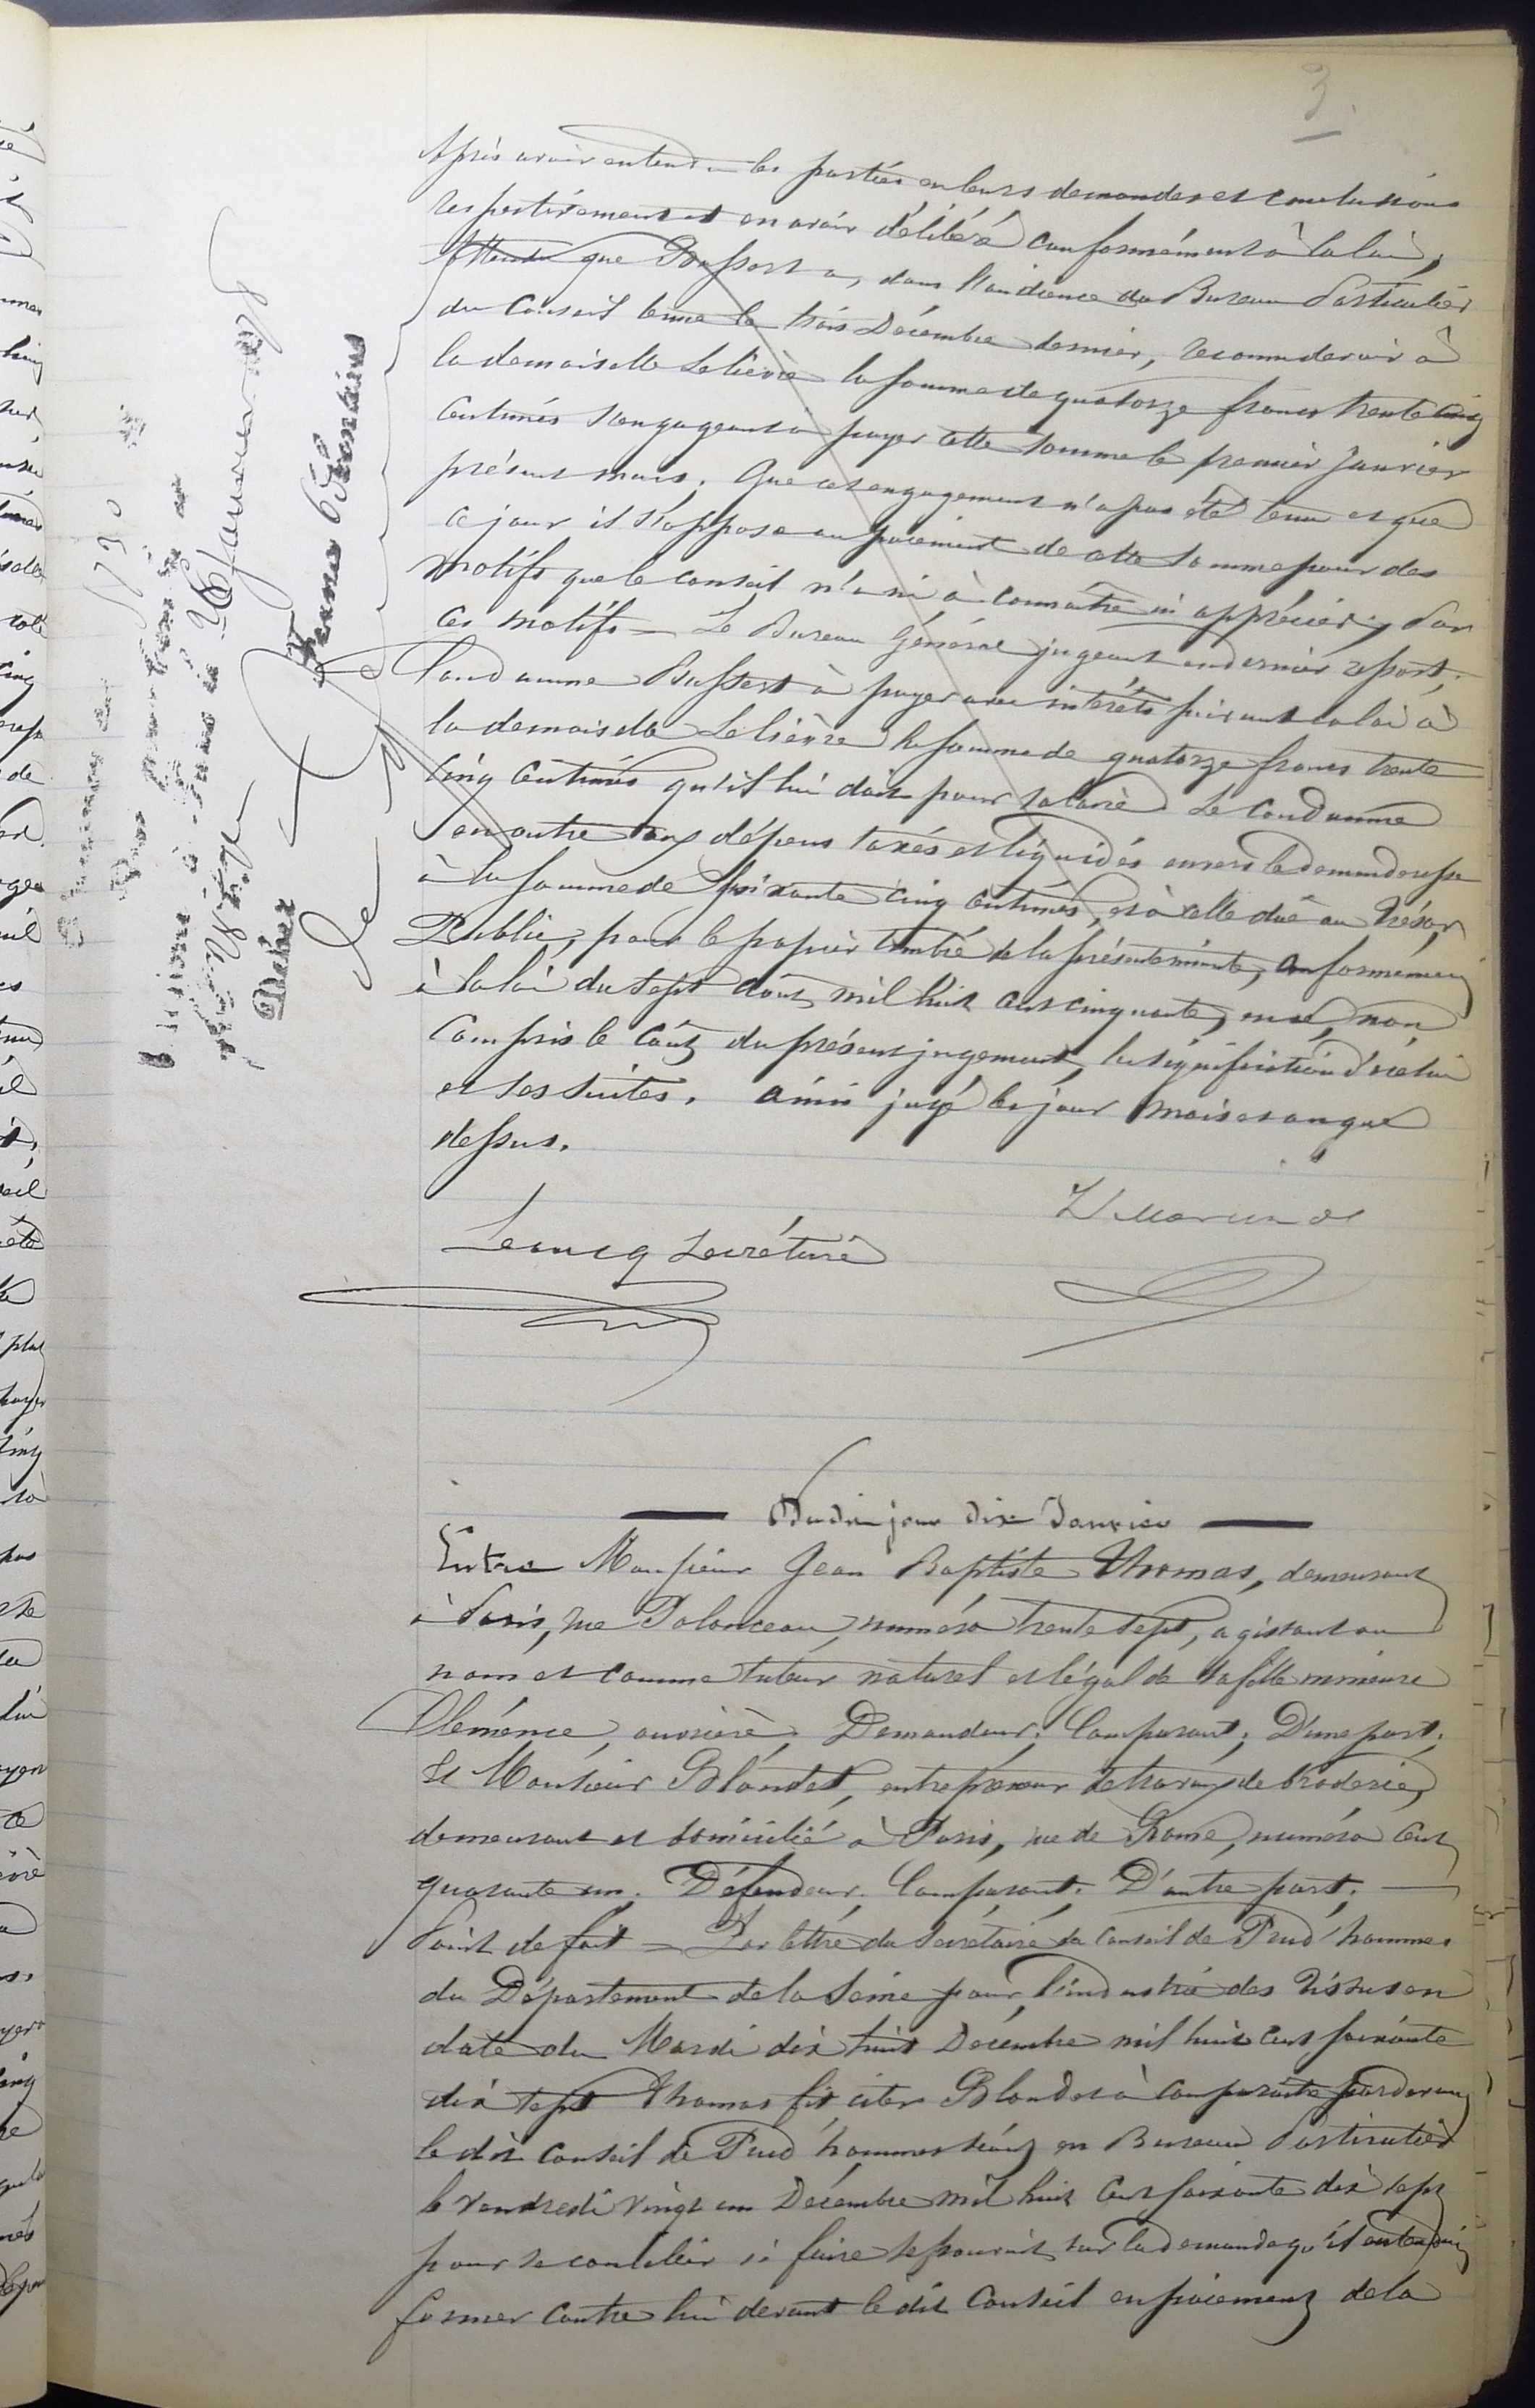 3.
Après avoir entendu les parties en leurs demandes et conclusions
respectivement et en avoir délibéré conformément à la loi,
Attendu que Bussert a, dans l'audience du Bureau Particulier
du Conseil tenue le trois Décembre dernier, reconnu devoir à
la demoiselle Lelièvre la somme de quatorze francs trente cinq
centimes s'engageant à payer cette somme le premier Janvier
présent mois. Que cet engagement n'a pas été tenu et que
ce jour il s'oppose au paiement de cette somme pour des
motifs que le conseil n'a ni à connaître ni apprécier; Par
ces motifs — Le Bureau Général jugeant en dernier ressort;
Condamne Bussert à payer avec intérêts suivant la loi à
la demoiselle Lelièvre la somme de quatorze francs trente
cinq centimes qu'il lui doit pour salaire. Le condamne
en outre aux dépens taxés et liquidés envers la demanderesse
à la somme de soixante cinq centimes, et à celle due au Trésor
Public, pour le papier timbré de la présente minute, conformément
à la loi du sept août mil huit cent cinquante, en ce, non
compris le coût du présent jugement, la signification d'icelui
et ses suites. Ainsi jugé les jour mois et an que
dessus.
Lecucq Secrétaire
Du dit jour dix Janvier
Entre Monsieur Jean Baptiste Thomas, demeurant
à Paris, rue Polonceau, numéro trente sept, agissant au
nom et comme tuteur naturel et légal de sa fille mineure
Clémence, ouvrière, Demandeur; Comparant; D'une part;
Et Monsieur Blondet, entrepreneur de travaux de broderie,
demeurant et domicilié à Paris, rue de Rome, numéro cent
quarante un. Défendeur. Comparant. D'autre part. —
Point de fait — Par lettre du Secrétaire du Conseil de Prud'hommes
du Département de la Seine pour l'industrie des Tissus en
date du Mardi dix huit Décembre mil huit cent soixante
dix sept Thomas fit citer Blondet à comparaître pardevant
le dit Conseil de Prud'hommes séant en Bureau Particulier
le vendredi vingt un Décembre mil huit cent soixante dix sept
pour se concilier si faire se pouvait sur la demande qu'il entendait
former contre lui devant le dit Conseil en paiement de la